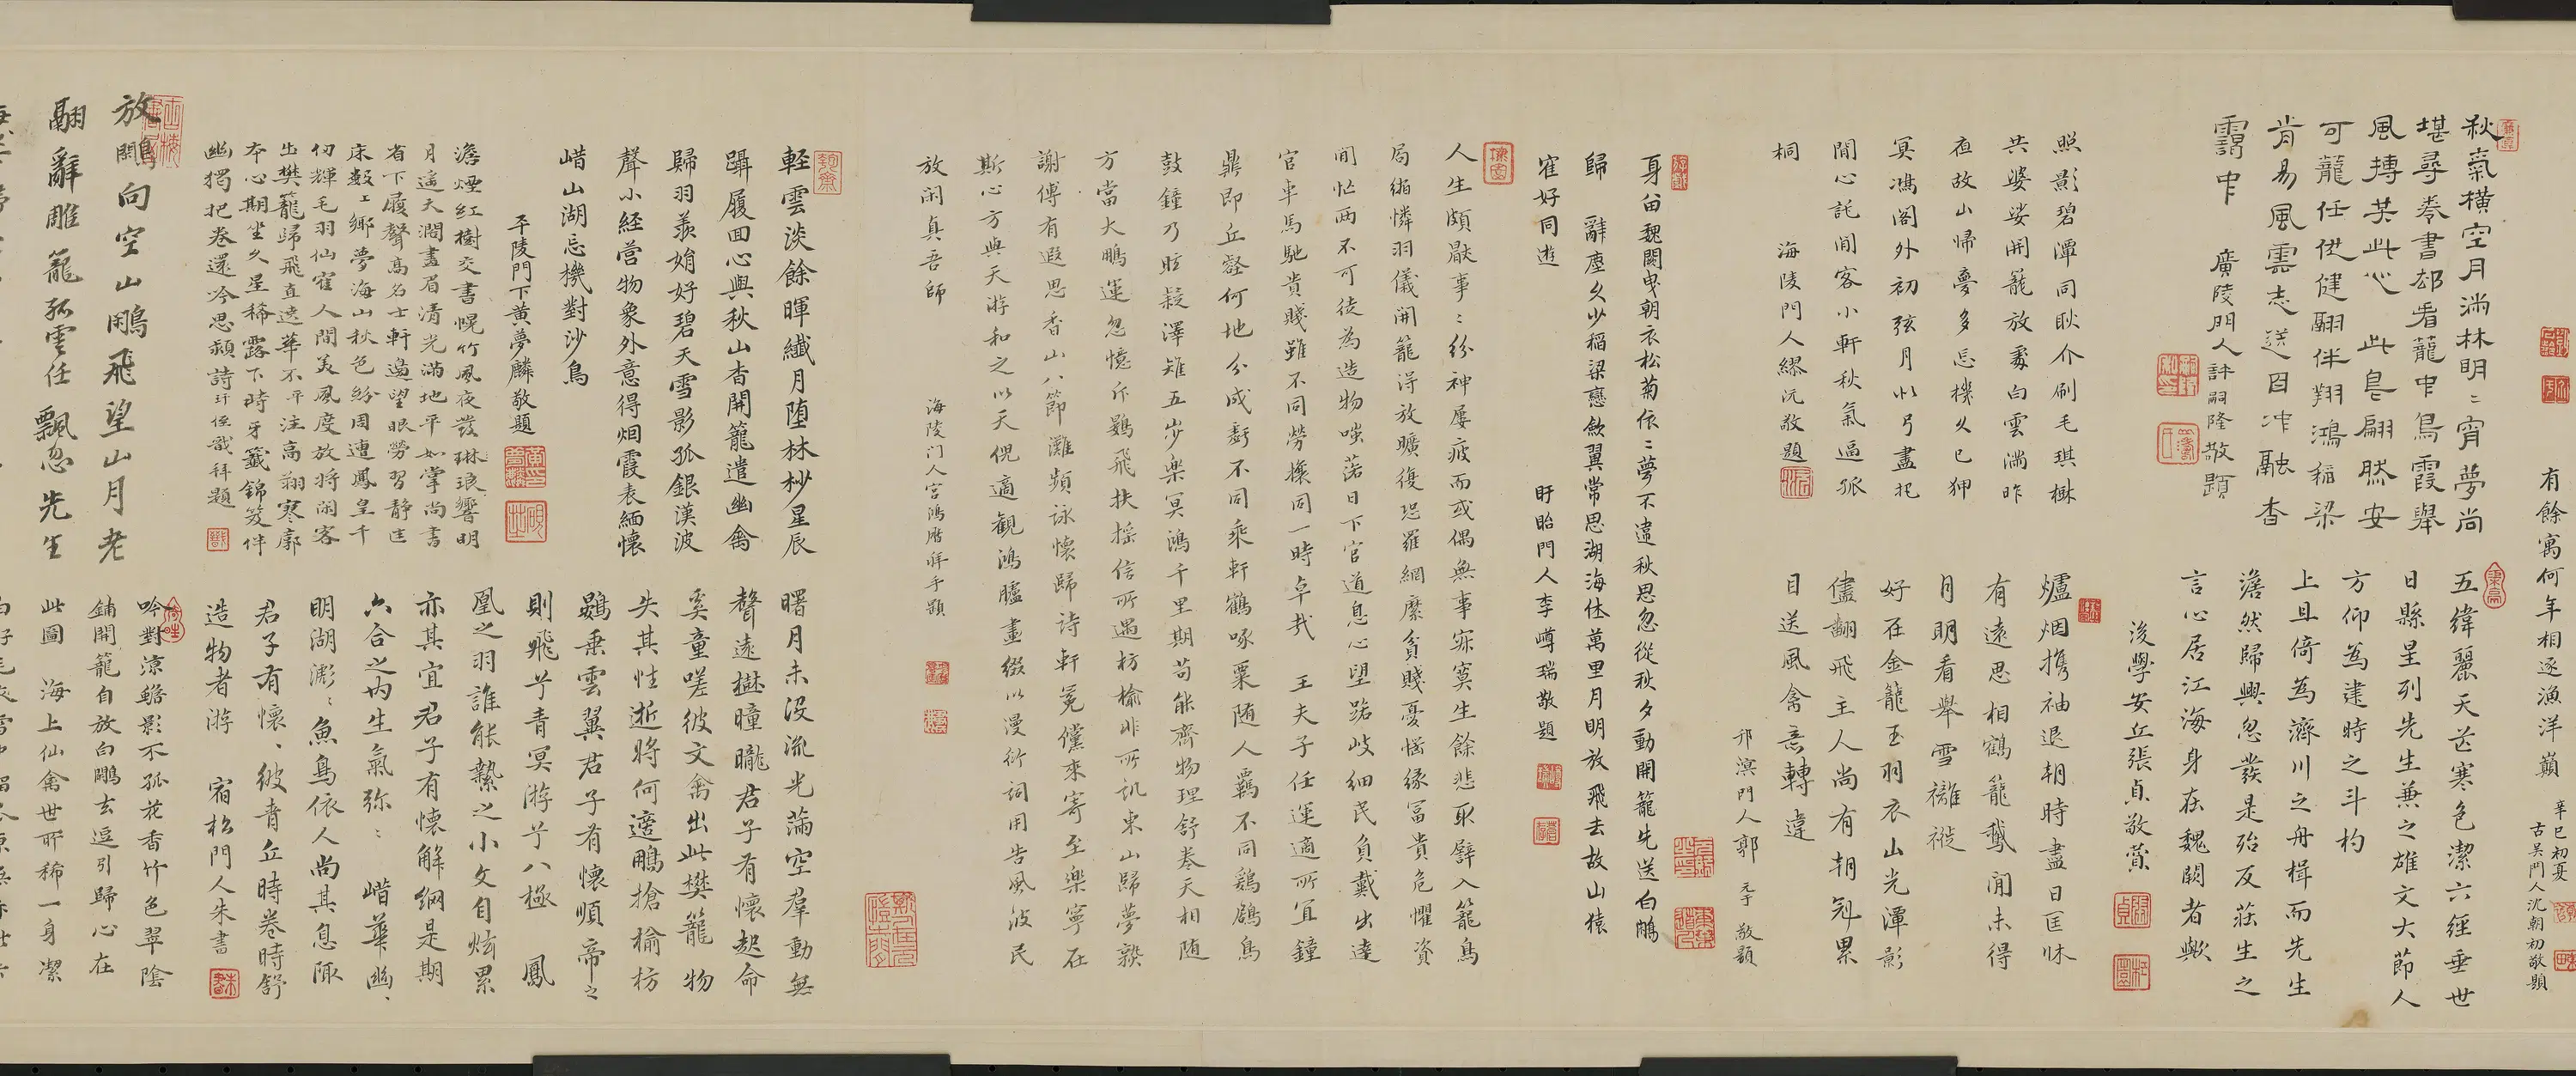 有餘寓何年相逐漁洋巔
辛巳初夏
古吳門人沈朝初敬題
秋氣橫空月滿林明〻宵夢尚
堪尋卷書却看籠中鳥霞舉
風摶其此心 此皀翩然安
可籠任伊健翮伴翔鴻稻粱
肯易風雲志送目冲融杳
靄中
廣陵門人許嗣隆敬題
五緯麗天芒寒色潔六經垂世
日縣星列先生兼之雄文大節人
方仰為建時之斗杓
上且倚為濟川之舟楫而先生
澹然歸興忽發是殆反莊生之
言心居江海身在魏闕者歟
後學安丘張貞敬蕒
照影碧潭同耿介刷毛琪樹
共婆娑開籠放處白雲滿昨
夜故山歸夢多忘機久已狎
冥鴻閣外初弦月似弓盡把
閒心託閒客小軒秋氣逼孤
桐
海陵門人繆沅敬題
爐烟攜袖退朝時盡日匡牀
有遠思相鶴籠鵞閒未得
月明看舉雪䙰褷
好在金籠玉羽衣山光潭影
儘翻飛主人尚有朝劍累
目送風禽意轉違
邗溟門人郭元釪敬題
身留魏闕曳朝衣松菊依〻夢不違秋思忽從秋夕動開籠先送白鷴
歸 辭塵久少稻粱戀斂翼常思湖海佳萬里月明放飛去故山猿
寉好同遊
盱眙門人李嶟瑞敬題
人生頗厭事〻紛神屢疲而或偶無事寂寞生餘悲取譬入籠鳥
局縮憐羽儀開籠得放曠復恐羅網縻貧賤憂惱緣富貴危懼資
閒忙兩不可徒為造物嗤諾日下官道息心望路岐細民負戴出達
官車馬馳貴賤雖不同勞攘同一時卓哉 王夫子任運適所宜鐘
鼎即丘壑何地分成虧不同乘軒鶴啄粟随人羈不同鷄鶋鳥
鼓鐘乃眩疑澤雉五步樂冥鴻千里期苟能齊物理舒卷天相随
方當大鵬運忽憶斥鷃飛扶搖信所遇枋榆非所訊東山歸夢熟
謝傅有遐思香山八節灘頻詠懷歸詩軒冕儻來寄至樂寧在
斯心方與天游和之以天倪適觀鴻臚畫綴以漫衍詞用告風波民
放閑真吾師
海陵门人宮鴻歷拜手題
輕雲淡餘暉纖月墮林杪星辰
躡履回心與秋山杳開籠遣幽禽
歸羽羨娟好碧天雪影孤銀漢波
聲小經营物象外意得烟霞表緬懷
㟙山湖忘機對沙鳥
平陵門下黄夢麟敬題
曙月未没流光滿空羣動無
聲遠樾曈曨君子有懷起命
奚童嗟彼文禽出此樊籠物
失其性逝將何適鵬搶榆枋
鷃乘雲翼君子有懷順帝之
則飛兮青冥游兮八極 鳳
凰之羽誰能縶之小文自炫累
亦其宜君子有懷解網是期
六合之内生氣弥〻 㟙華幽、
明湖瀰〻魚鳥依人尚其息陬
君子有懷、彼青丘時卷時舒
造物者游
宿松門人朱書
澹煙紅樹交書幌竹風夜發琳琅響明
月遙天澗畫眉清光滿地平如掌尚書
省下履聲高名士軒邊望眼勞習静匡
床數〻鄉夢海山秋色紛周遭鳳皇千
仞輝毛羽仙寉人間美風度放将闲客
出樊籠歸飛直遠華不注高翔寒廓
本心期坐久星稀露下時牙籤錦笈伴
幽獨把卷還吟思潁詩
玕侄戩拜題
放鷴向空山鷴飛望山月老
翮辭雕籠孤雲任飄忽先生
吟對涼蟾影不孤花香竹色翠陰
鋪開籠自放白鷴去逗引歸心在
此圖 海上仙禽世所稀一身潔